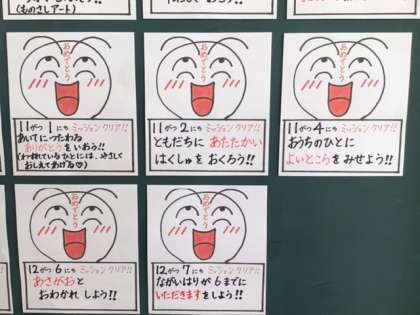 (ものさしアート)
おめでとう
11がつ1にち ミッションクリア!!
あいてにつたわる
ありがとうをいおう!!
(わすれているひとには、やさしく
おしえてあげる♡)
おめでとう
11がつ2にち ミッションクリア!!
ともだちに あたたかい
はくしゅを おくろう!!
おめでとう
11がつ4にち ミッションクリア!!
おうちのひとに
よいところをみせよう!!
おめでとう
12がつ6にち ミッションクリア!!
あさがおと
おわかれ しよう!!
おめでとう
12がつ7にち ミッションクリア!!
ながいはりが6までに
いただきますをしよう!!